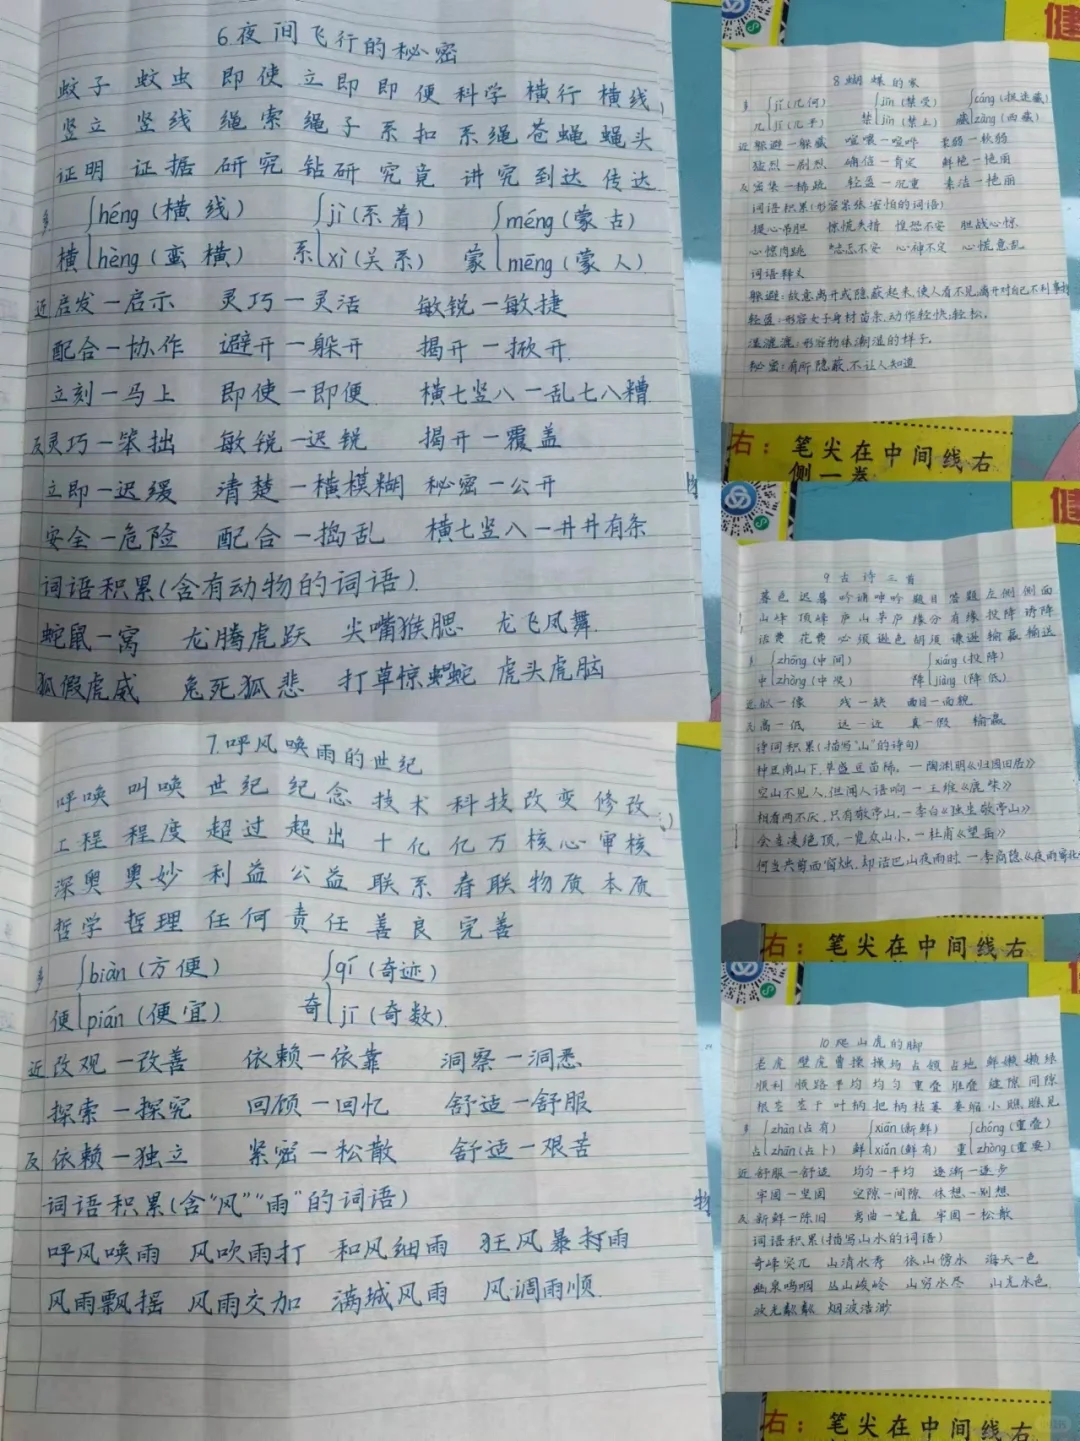 6.夜间飞行的秘密
蚊子 蚊虫 即使 立即 即便 科学 横行 横线
竖立 竖线 绳索 绳子 系扣 系绳 苍蝇 蝇头
证明 证据 研究 钻研 究竟 讲究 到达 传达
多 héng(横线) jì(系着) méng(蒙古)
横 hèng(蛮横) 系 xì(关系) 蒙 mēng(蒙人)
近 启发—启示 灵巧—灵活 敏锐—敏捷
配合—协作 避开—躲开 揭开—掀开
立刻—马上 即使—即便 横七竖八—乱七八糟
反 灵巧—笨拙 敏锐—迟锐 揭开—覆盖
立即—迟缓 清楚—横模糊 秘密—公开
安全—危险 配合—捣乱 横七竖八—井井有条
词语积累(含有动物的词语)
蛇鼠一窝 龙腾虎跃 尖嘴猴腮 龙飞凤舞
狐假虎威 兔死狐悲 打草惊蛇 虎头虎脑
7.呼风唤雨的世纪
呼唤 叫唤 世纪 纪念 技术 科技 改变 修改
工程 程度 超过 超出 十亿 亿万 核心 审核
深奥 奥妙 利益 公益 联系 春联 物质 本质
哲学 哲理 任何 责任 善良 完善
多 biàn(方便) qí(奇迹)
便 pián(便宜) 奇 jī(奇数)
近 改观—改善 依赖—依靠 洞察—洞悉
探索—探究 回顾—回忆 舒适—舒服
反 依赖—独立 紧密—松散 舒适—艰苦
词语积累(含“风”“雨”的词语)
呼风唤雨 风吹雨打 和风细雨 狂风暴雨
风雨飘摇 风雨交加 满城风雨 风调雨顺
8 蝴蝶的家
多 jǐ(几何) jīn(禁受) cáng(捉迷藏)
几 jī(几乎) 禁 jìn(禁止) 藏 zàng(西藏)
近 躲避—躲藏 喧嚷—喧哗 柔弱—软弱
猛烈—剧烈 确信—肯定 鲜艳—艳丽
反 密集—稀疏 轻盈—沉重 素洁—艳丽
词语积累(形容紧张害怕的词语)
提心吊胆 惊慌失措 惶恐不安 胆战心惊
心惊肉跳 忐忑不安 心神不定 心慌意乱
词语释义
躲避:故意离开或隐蔽起来,使人看不见;离开对自己不利事
轻盈:形容女子身材苗条,动作轻快;轻松。
湿漉漉:形容物体潮湿的样子。
秘密:有所隐蔽,不让人知道
右: 笔尖在中间线右
侧一卷
9 古诗三首
暮色 迟暮 吟诵 呻吟 题目 答题 左侧 侧面
山峰 顶峰 庐山 茅庐 缘分 有缘 投降 诱降
话费 花费 必须 逊色 胡须 谦逊 输赢 输送
多 zhōng(中间) xiáng(投降)
中 zhòng(中奖) 降 jiàng(降低)
近 似—像 残—缺 面目—面貌
反 高—低 远—近 真—假 输—赢
诗词积累(描写“山”的诗句)
种豆南山下,草盛豆苗稀。—陶渊明《归园田居》
空山不见人,但闻人语响—王维《鹿柴》
相看两不厌,只有敬亭山。—李白《独坐敬亭山》
会当凌绝顶,一览众山小。—杜甫《望岳》
何当共剪西窗烛,却话巴山夜雨时。—李商隐《夜雨寄北
右: 笔尖在中间线右
10 爬山虎的脚
老虎 壁虎 曹操 操场 占领 占地 鲜嫩 嫩绿
顺利 顺路 平均 均匀 重叠 堆叠 缝隙 间隙
根茎 茎干 叶柄 把柄 枯萎 萎缩 小瞧 瞧见
多 zhàn(占有) xiān(新鲜) chóng(重叠)
占 zhān(占卜) 鲜 xiǎn(鲜有) 重 zhòng(重要)
近 舒服—舒适 均匀—平均 逐渐—逐步
牢固—坚固 空隙—间隙 休想—别想
反 新鲜—陈旧 弯曲—笔直 牢固—松散
词语积累(描写山水的词语)
奇峰突兀 山清水秀 依山傍水 海天一色
幽泉呜咽 丛山峻岭 山穷水尽 山光水色
波光粼粼 烟波浩渺
右: 笔尖在中间线右